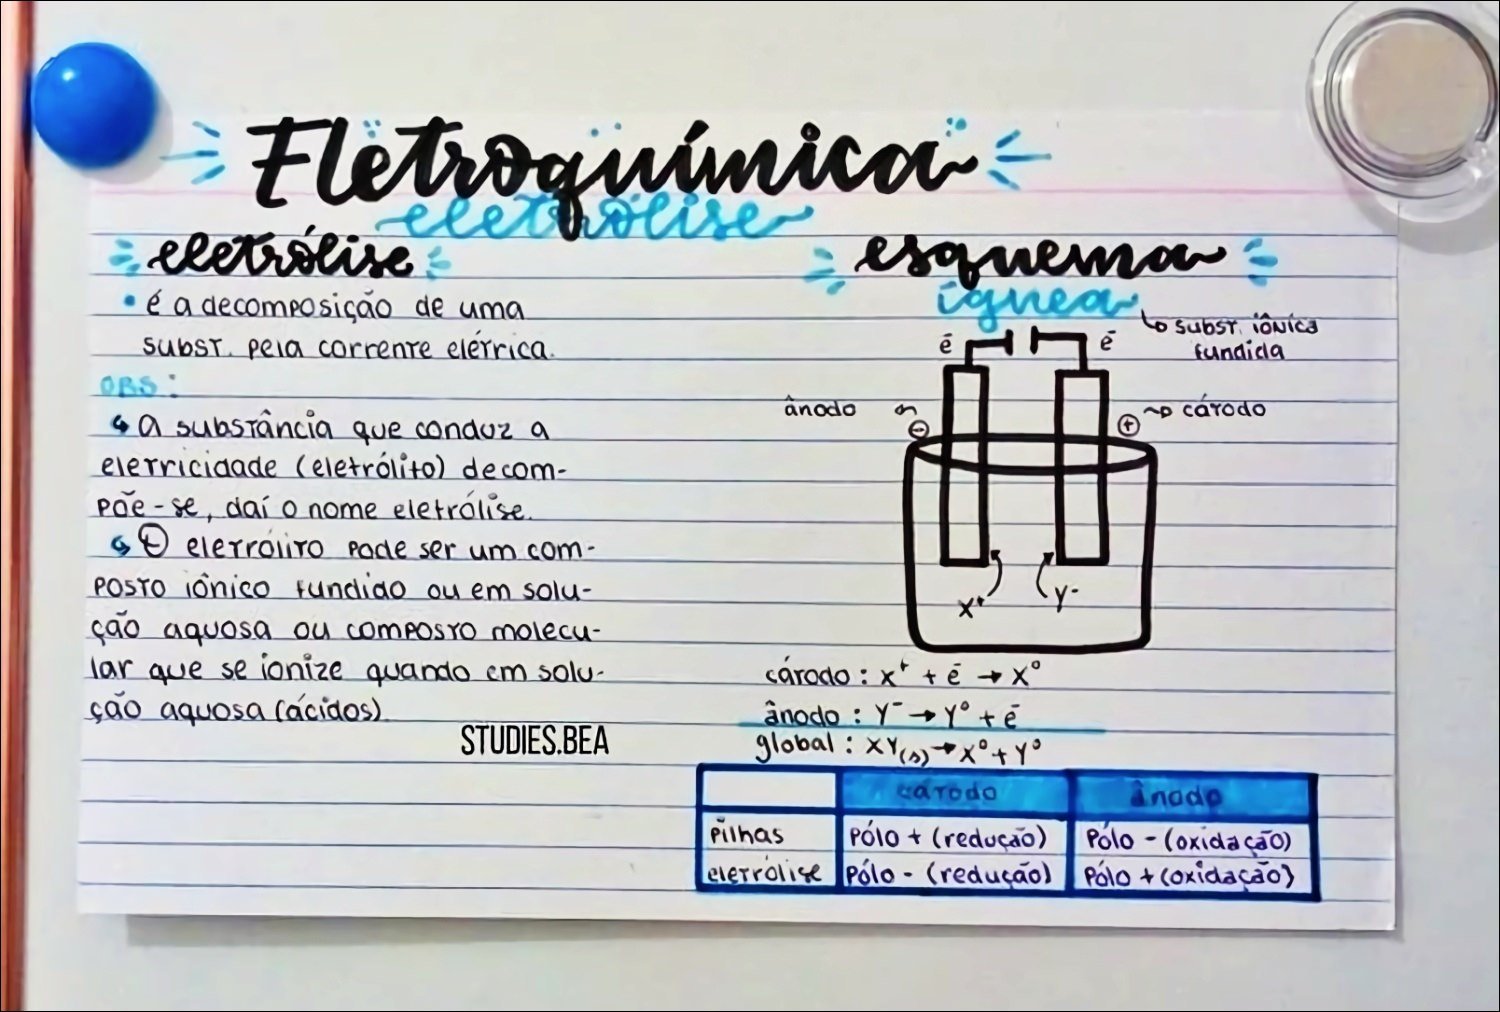 Eletroquímica
eletrólise
eletrólise
• é a decomposição de uma
subst. pela corrente elétrica.
OBS:
↳ A substância que conduz a
eletricidade (eletrólito) decom-
põe-se, daí o nome eletrólise.
↳ O eletrólito pode ser um com-
posto iônico fundido ou em solu-
ção aquosa ou composto molecu-
lar que se ionize quando em solu-
ção aquosa (ácidos).
STUDIES.BEA
esquema
ígnea
↳ subst. iônica
fundida
ē ē
ânodo
⊖
⊕ → cátodo
X⁺ Y⁻
cátodo: X⁺ + ē → X⁰
ânodo: Y⁻ → Y⁰ + ē
global: XY(s) → X⁰ + Y⁰
cátodo ânodo
pilhas Pólo + (redução) Pólo - (oxidação)
eletrólise Pólo - (redução) Pólo + (oxidação)